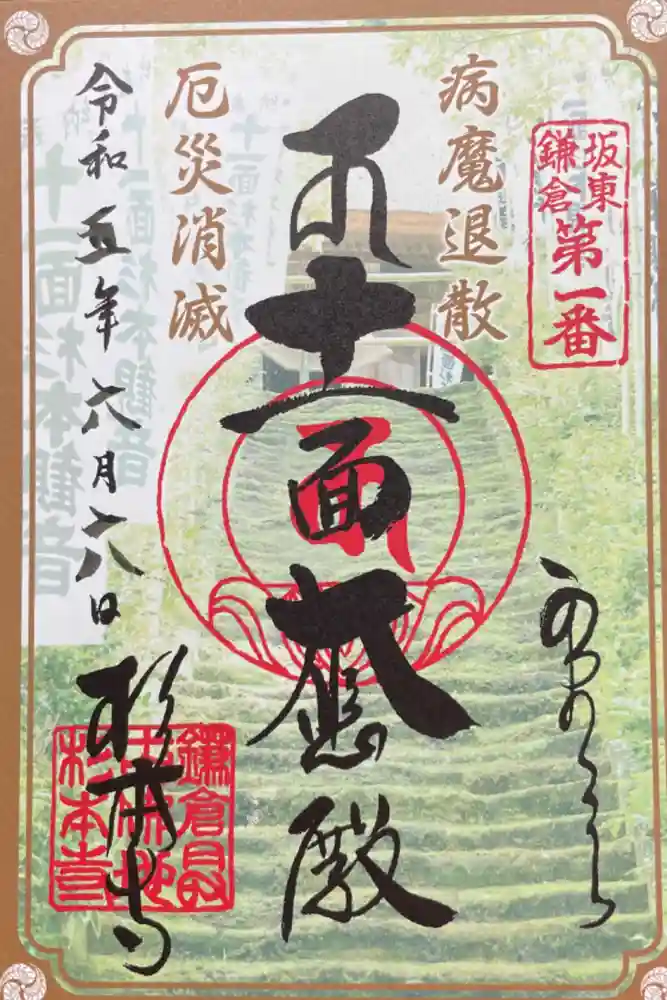 坂東
鎌倉
第一番
病魔退散
十一面大悲殿
厄災消滅
令和五年六月十八日
杉本寺
鎌倉最
古佛地
杉本寺
十一面杉本観音
十一面杉本観音